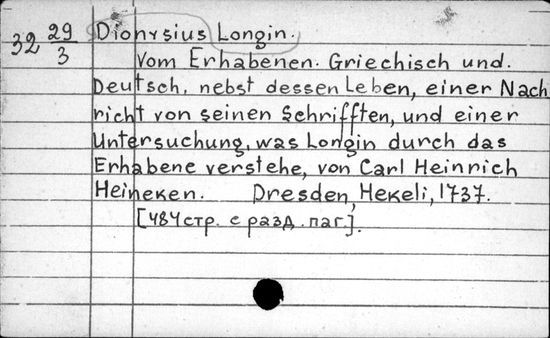 32 29/3 Dionysius Longin.
Vom Erhabenen. Griechisch und.
Deutsch, nebst dessen Leben, einer Nach
richt von seinen Schrifften, und einer
Untersuchung, was Longin durch das
Erhabene verstehe, von Carl Heinrich
Heineken. Dresden, Hekeli, 1737.
[484 стр. с разд. паг.].